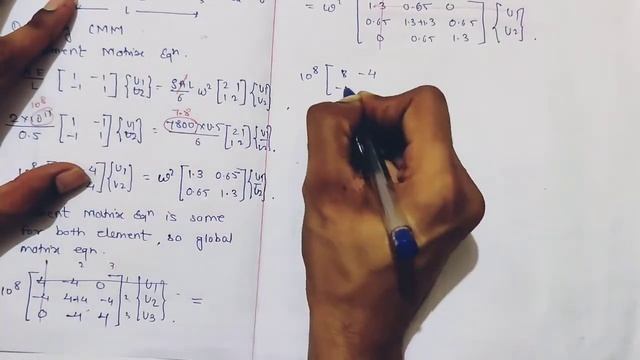 L
CMM
Matrix Eqn.
[1 -1
-1 1] {U1
U2} = SAL/6 ω² [2 1
1 2] {U1
U2}.
10⁸ 7.8
2×10¹³/0.5 [1 -1
-1 1] {U1
U2} = 7800×0.5/6 [2 1
1 2] {U1
U2}.
{U1
U2} = ω² [1.3 0.65
0.65 1.3] {U1
U2}.
Matrix Eqn is same
for both element, so global
matrix eqn.
2 3
10⁸ [4 -4 0
-4 4+4 -4
0 -4 4] 1
2
3 {U1
U2
U3} =
= ω² [1.3 0.65 0
0.65 1.3+1.3 0.65
0 0.65 1.3] {U1
U2}
10⁸ [8 -4